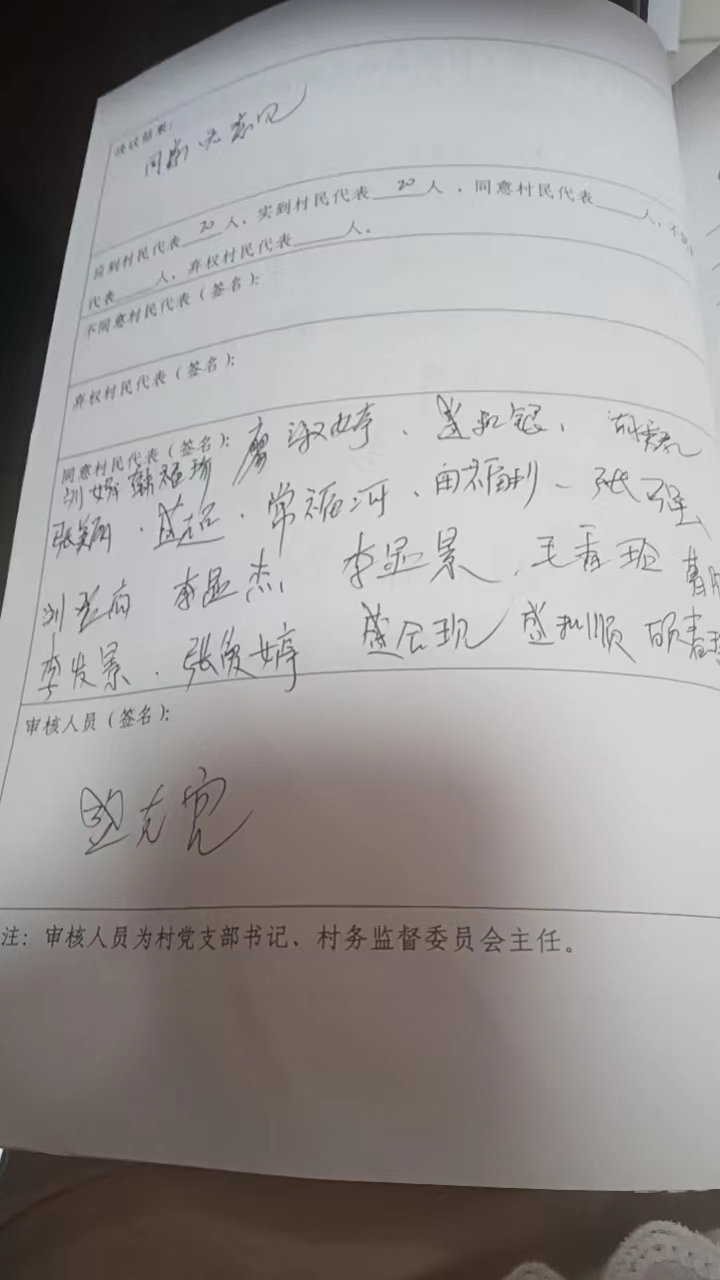 决议结果：
同意 无意见
应到村民代表 20 人，实到村民代表 20 人，同意村民代表 人，不同意
代表 人，弃权村民代表 人。
不同意村民代表（签名）：
弃权村民代表（签名）：
同意村民代表（签名）： 廖淑婷、盛
刘 韩福
张 盛超、常福河、田福 张强
刘 李显杰 李显景 王香
李发景 张俊婷 盛会现 盛和顺
审核人员（签名）：
盛
注：审核人员为村党支部书记、村务监督委员会主任。